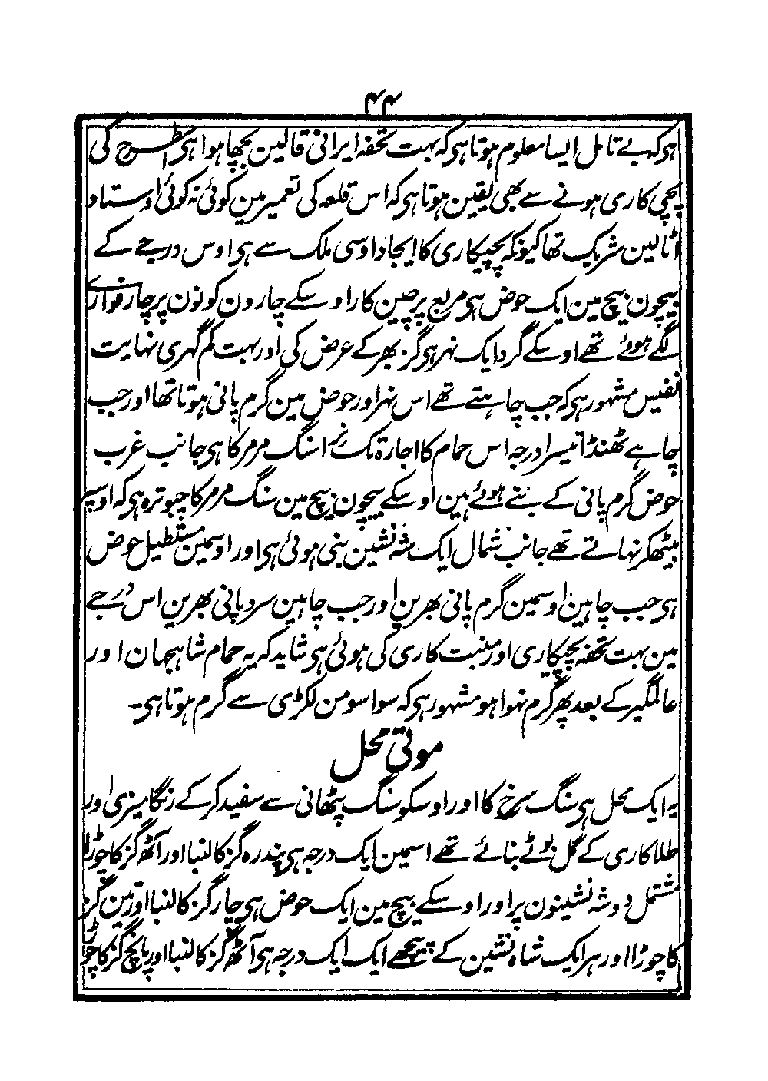 ۴۴
ہی کہ بے تامل ایسا معلوم ہوتا ہی کہ بہت تحفہ ایرانی قالین بچھا ہوا ہی اسطرح کی
پچی کاری ہونے سے بھی یقین ہوتا ہی کہ اس قلعہ کی تعمیر مین کوئی نہ کوئی اوستاد
اٹالین شریک تھا کیونکہ پچیکاری کا ایجاد اوسی ملک سے ہی اوس درجے کے
بیچون بیچ مین ایک حوض ہی مربع پرچین کار اوسکے چارون کونون پر چار فوارے
لگے ہوئے تھے اوسکے گرد ایک نہر ہی گز بھر کے عرض کی اور بہت کم گہری نہایت
نفیس مشہور ہی کہ جب چاہتے تھے اس نہر اور حوض مین گرم پانی ہوتا تھا اور جب
چاہے ٹھنڈا تیسرا درجہ اس حمام کا اجارہ تک نرا سنگ مرمر کا ہی جانب غرب
حوض گرم پانی کے بنے ہوئے ہین اوسکے بیچون بیچ مین سنگ مرمر کا چبوترہ ہی کہ اوسپر
بیٹھکر نہاتے تھے جانب شمال ایک شہ نشین بنی ہوئی ہی اور اوسمین مستطیل حوض
ہی جب چاہین اوسمین گرم پانی بھرین اور جب چاہین سرد پانی بھرین اس درجے
مین بہت تحفہ پچیکاری اور منبت کاری کی ہوئی ہی شاید کہ یہ حمام شاہجہان اور
عالمگیر کے بعد پھر گرم نہوا ہو مشہور ہی کہ سوا سو من لکڑی سے گرم ہوتا ہی۔
موتی محل
یہ ایک محل ہی سنگ سرخ کا اور اوسکو سنگ پٹھانی سے سفید کر کے رنگامیزی اور
طلا کاری کے گل بوٹے بنائے تھے اسمین ایک درجہ ہی پندرہ گز کا لنبا اور آٹھ گز کا چوڑا
مشتمل دو شہ نشینون پر اور اوسکے بیچ مین ایک حوض ہی چار گز کا لنبا اور تین گز
کا چوڑا اور ہر ایک شاہ نشین کے پیچھے ایک ایک درجہ ہی آٹھ گز کا لنبا اور پانچ گز کا چوڑا